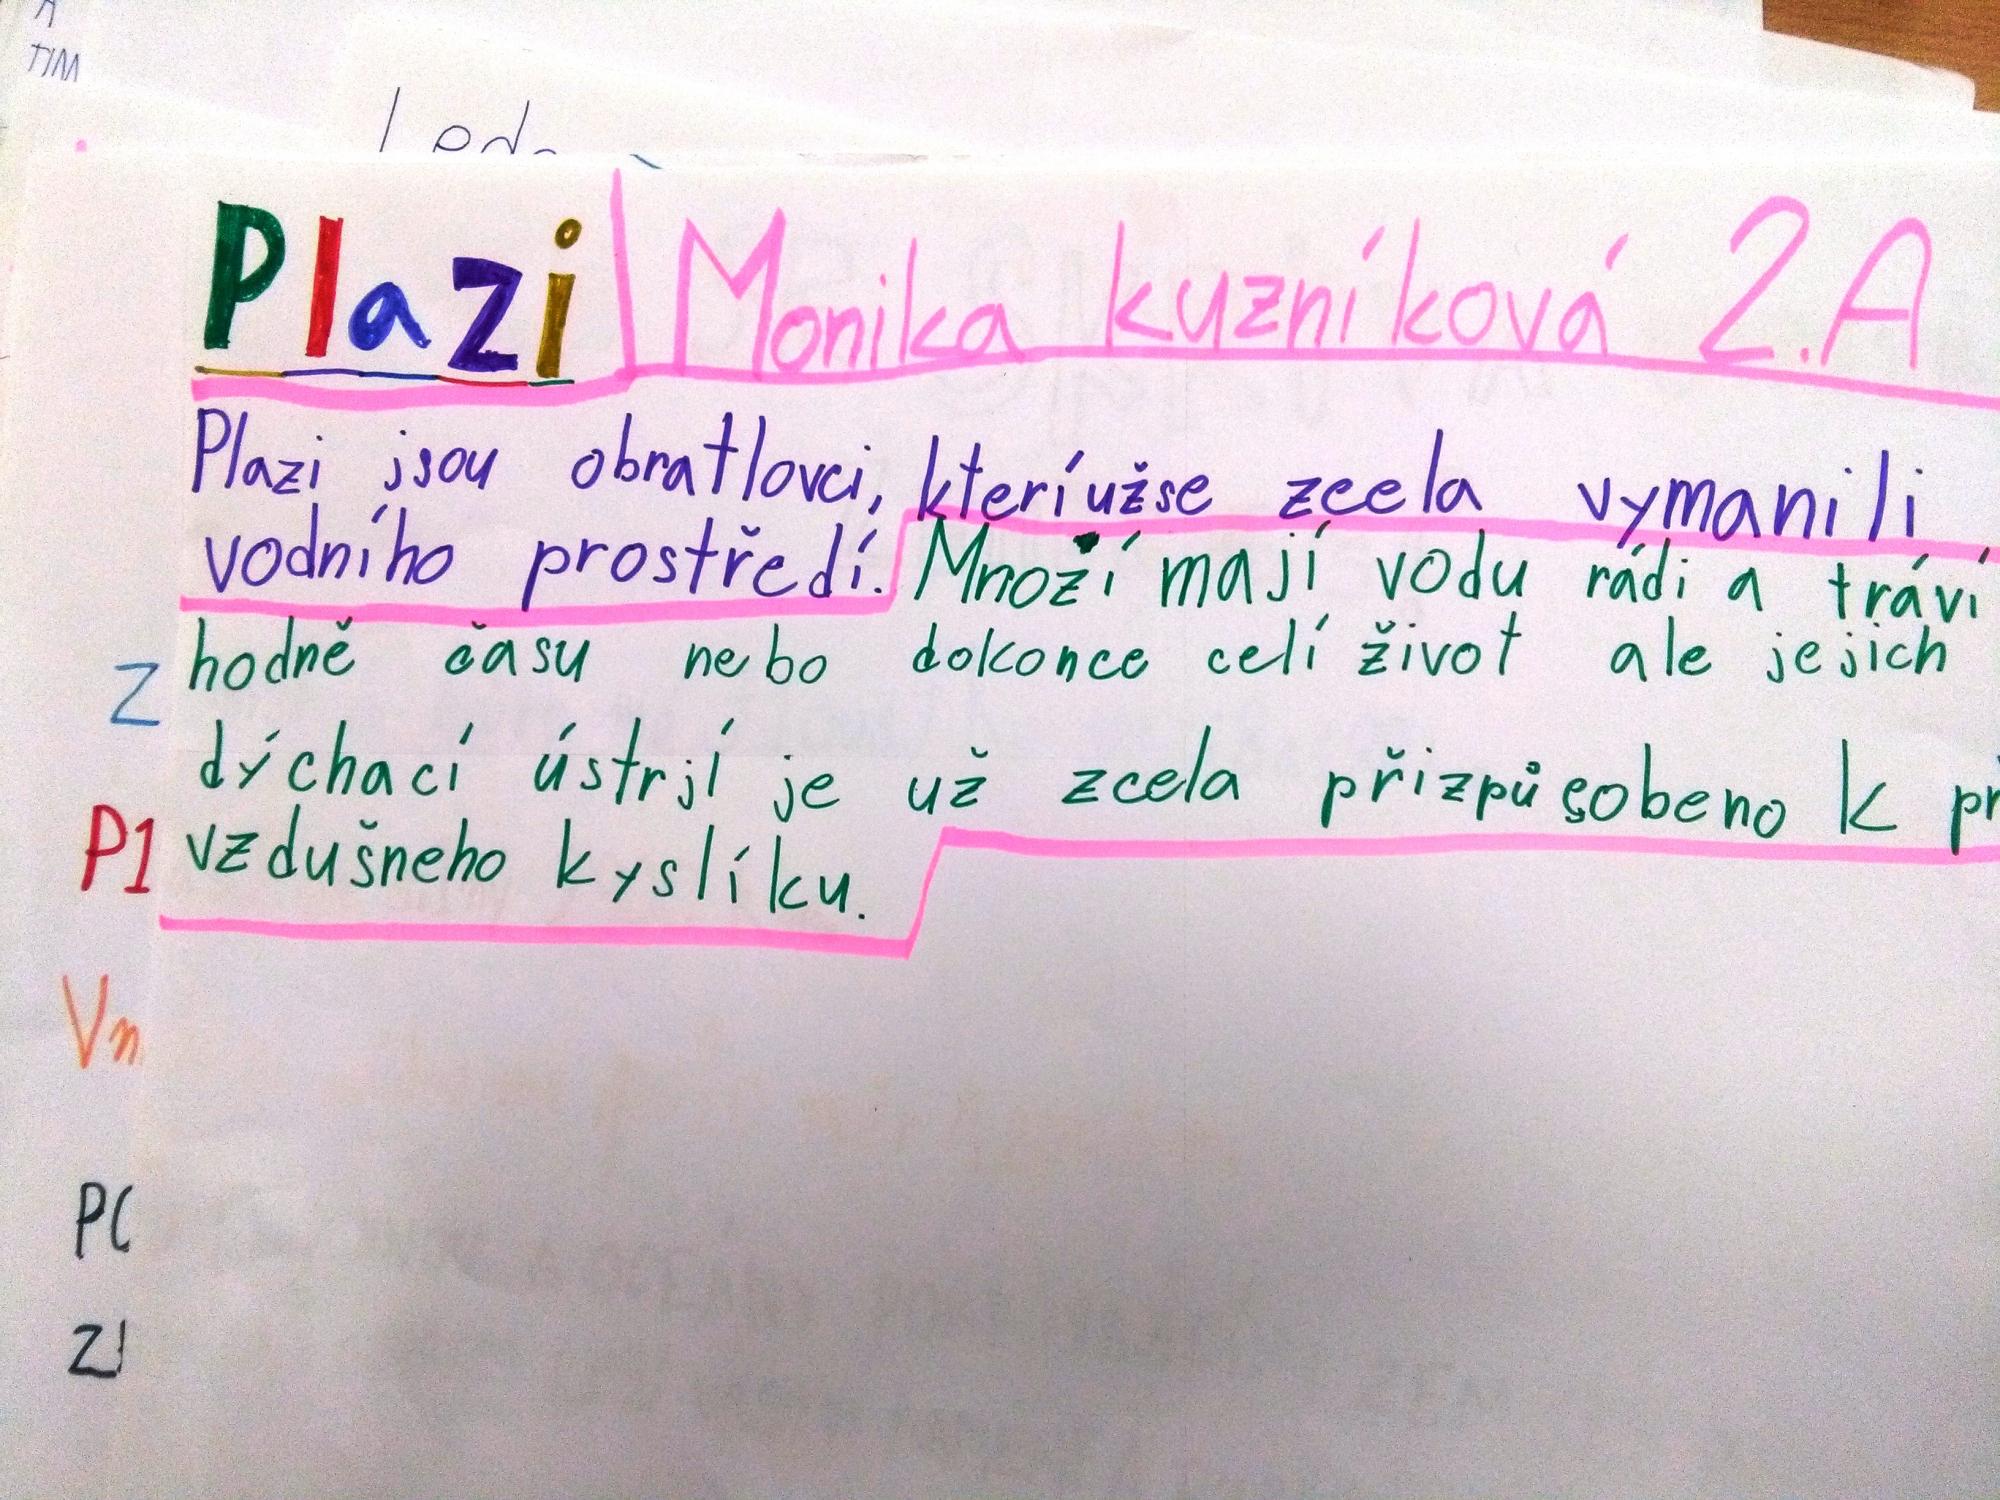 TIM
Plazi Monika kuzníková 2.A
Plazi jsou obratlovci, kteří už se zcela vymanili
vodního prostředí. Mnozí mají vodu rádi a tráví
hodně času nebo dokonce celí život ale jejich
dýchací ústrjí je už zcela přizpůsobeno k
vzdušneho kyslíku.
Z
P1
Vn